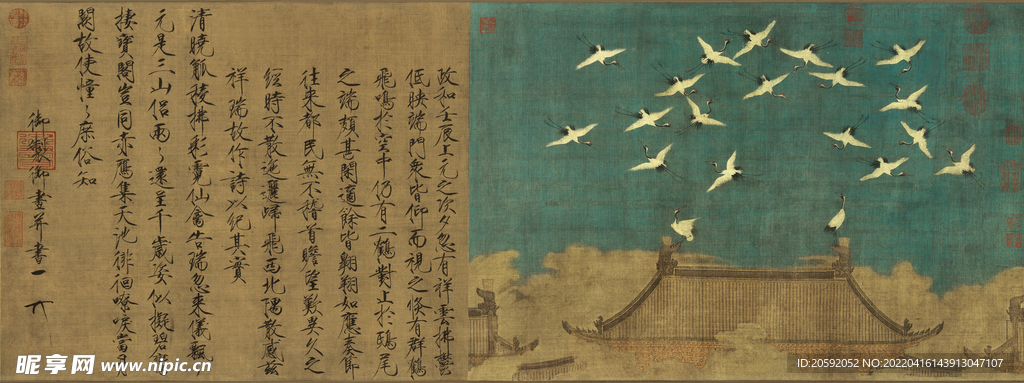 政和壬辰上元之次夕忽有祥雲拂鬱
低映端門眾皆仰而視之倏有群鶴
飛鳴於空中仍有二鶴對止於鴟尾
之端頗甚閑適餘皆翱翔如應奏節
往來都民無不稽首瞻望歎異久之
經時不散迤邐歸飛西北隅散感茲
祥瑞故作詩以紀其實
清曉觚稜拂彩霓仙禽告瑞忽來儀飄
元是三山侶兩〻還呈千歲姿似擬碧
棲寶閣豈同赤鴈集天池徘徊嘹唳當丹
闕故使憧〻庶俗知
御製御畫并書
昵享网 www.nipic.cn
ID:20592052 NO:20220416143913047107